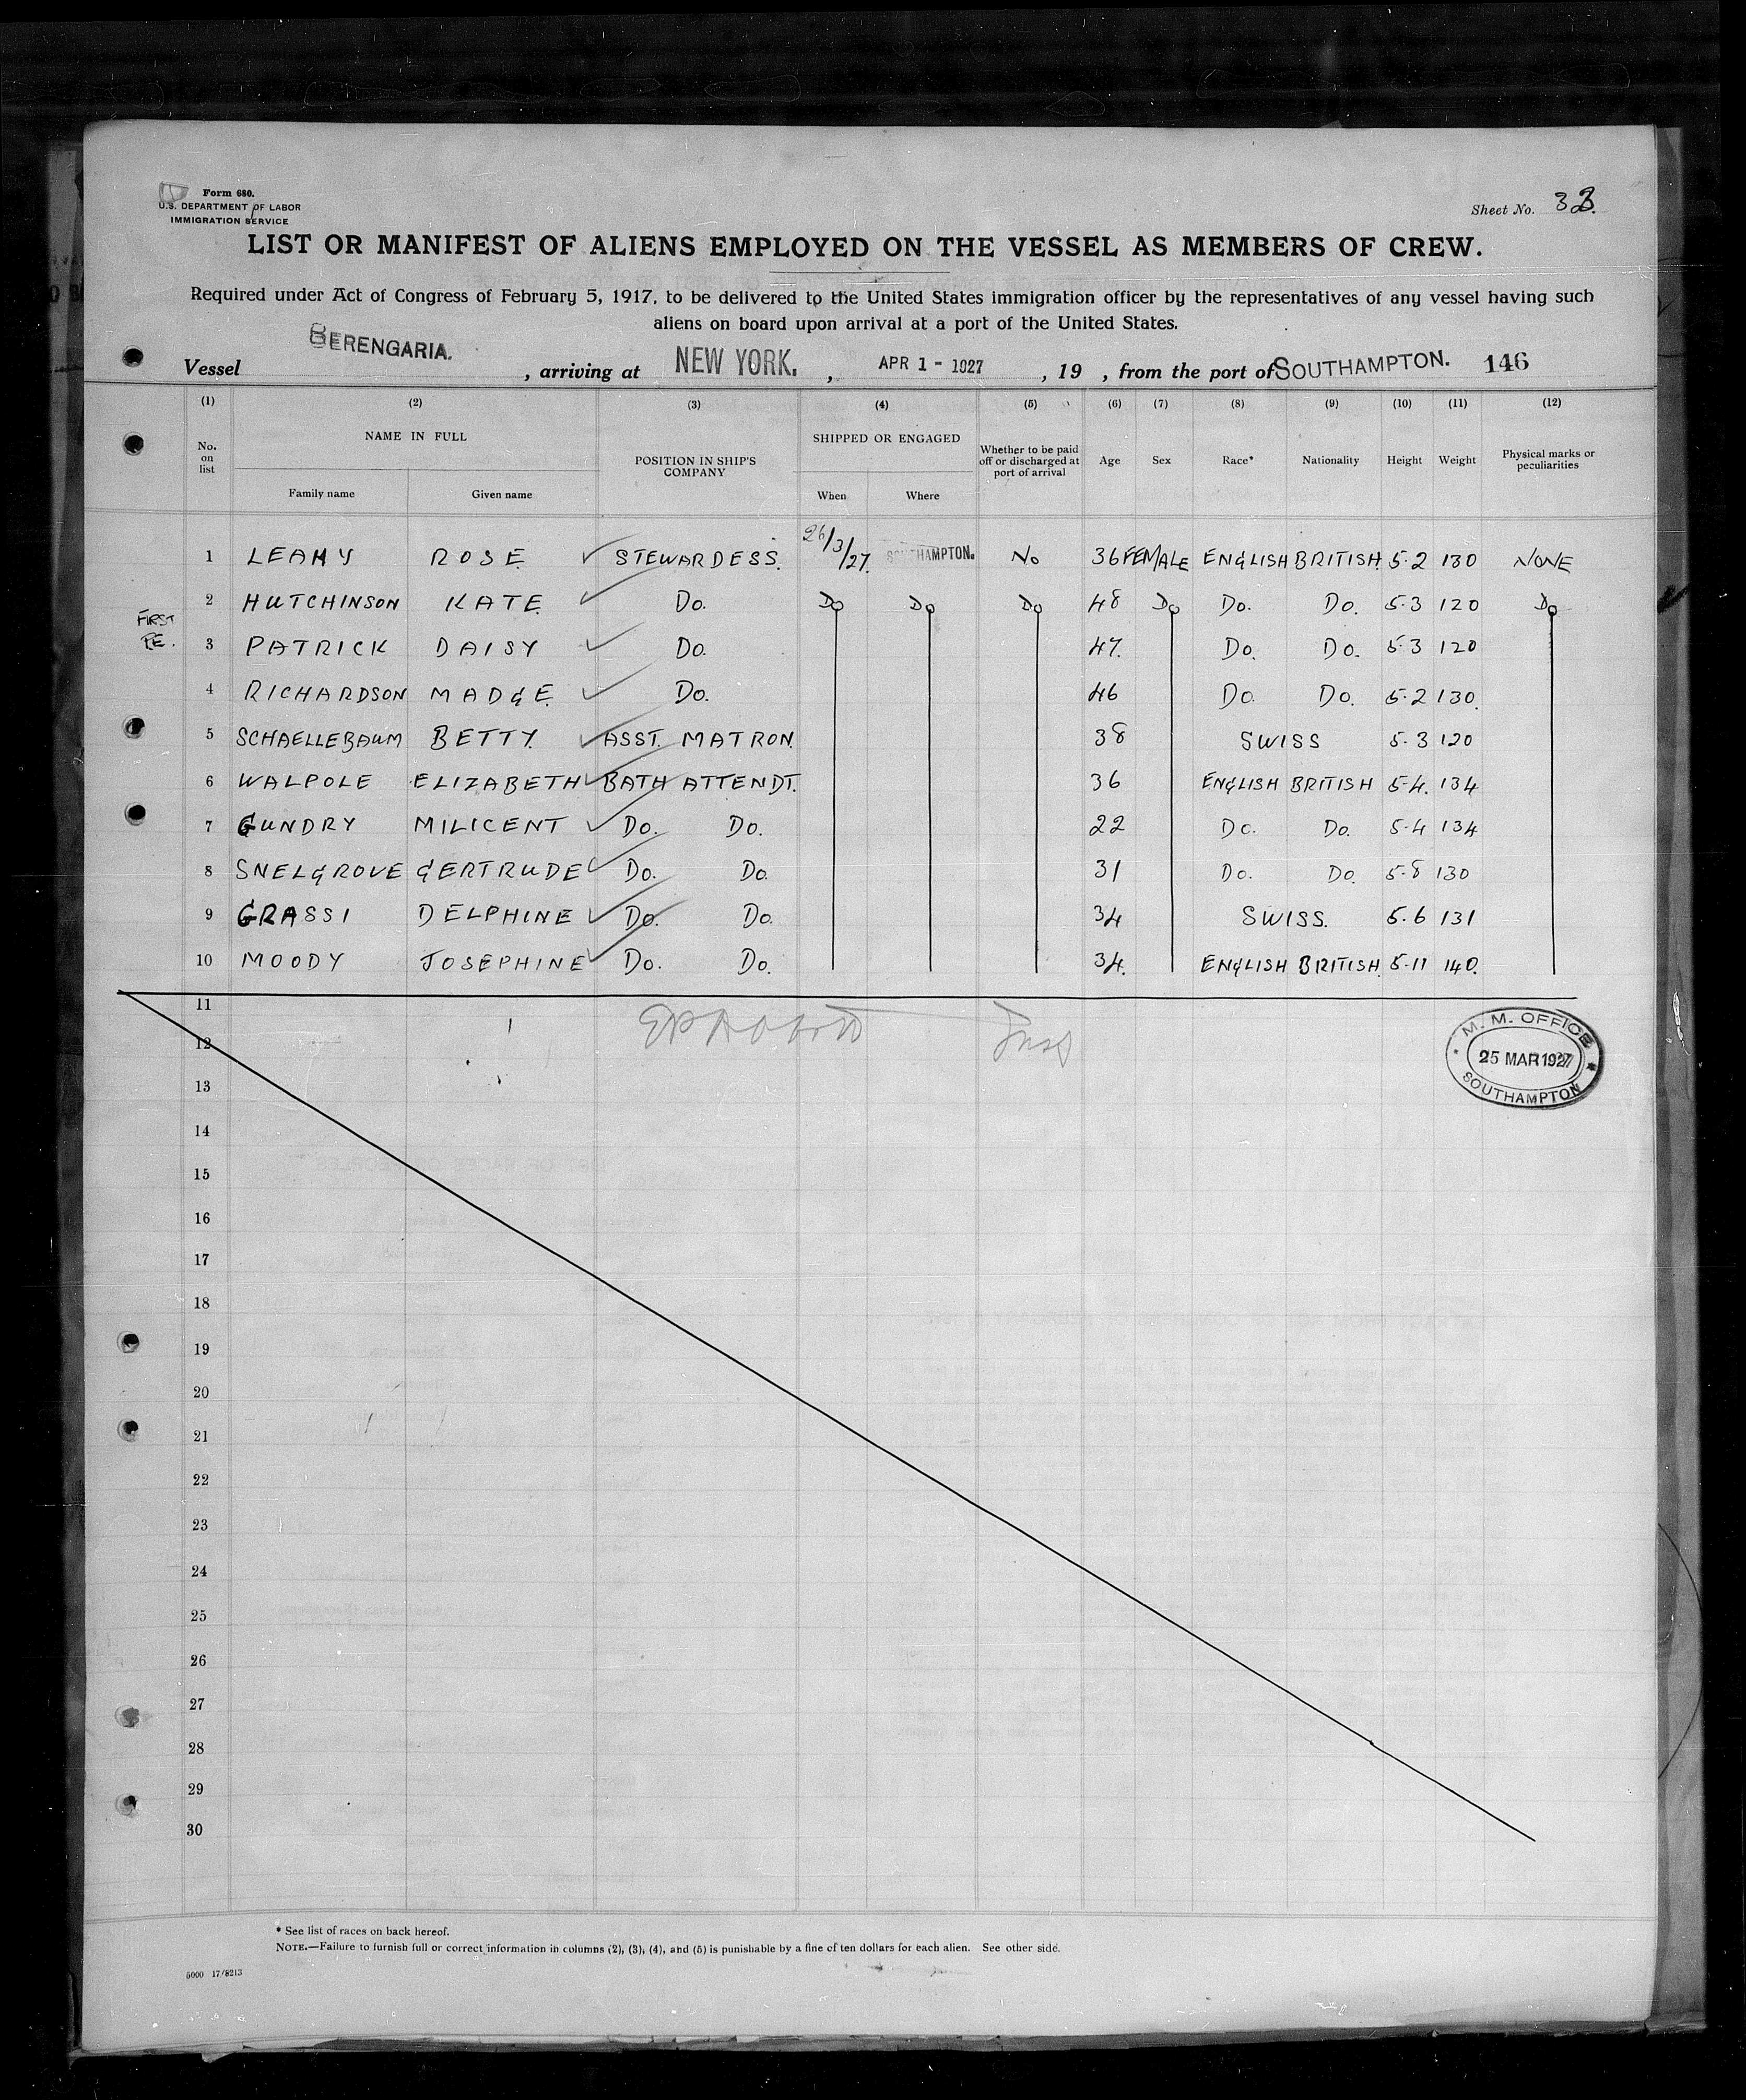 Form 680.
U.S. DEPARTMENT OF LABOR
IMMIGRATION SERVICE
Sheet No. 33.
LIST OR MANIFEST OF ALIENS EMPLOYED ON THE VESSEL AS MEMBERS OF CREW.
Required under Act of Congress of February 5, 1917, to be delivered to the United States immigration officer by the representatives of any vessel having such
aliens on board upon arrival at a port of the United States.
Vessel BERENGARIA. , arriving at NEW YORK. , APR 1 - 1927 , 19 , from the port of SOUTHAMPTON. 146
(1) (2) (3) (4) (5) (6) (7) (8) (9) (10) (11) (12)
No. on list NAME IN FULL POSITION IN SHIP'S COMPANY SHIPPED OR ENGAGED Whether to be paid off or discharged at port of arrival Age Sex Race* Nationality Height Weight Physical marks or peculiarities
Family name Given name When Where
1 LEAHY ROSE STEWARDESS. 26/3/27. SOUTHAMPTON. No 36 FEMALE ENGLISH BRITISH. 5-2 130 NONE
2 HUTCHINSON KATE Do. Do Do Do 48 Do Do. Do. 5-3 120 Do
FIRST
3 PATRICK DAISY Do. 47. Do. Do. 5-3 120
4 RICHARDSON MADGE Do. 46 Do. Do. 5-2 130.
5 SCHAELLEBAUM BETTY. ASST. MATRON. 38 SWISS 5-3 120
6 WALPOLE ELIZABETH BATH ATTENDT. 36 ENGLISH BRITISH 5-4. 134
7 GUNDRY MILICENT Do. Do. 22 Do. Do. 5-4 134
8 SNELGROVE GERTRUDE Do. Do. 31 Do. Do. 5-8 130
9 GRASSI DELPHINE Do. Do. 34 SWISS. 5-6 131
10 MOODY JOSEPHINE Do. Do. 34. ENGLISH BRITISH. 5-11 140.
11
12
13
M. M. OFFICE
25 MAR 1927
SOUTHAMPTON
14
15
16
17
18
19
20
21
22
23
24
25
26
27
28
29
30
* See list of races on back hereof.
NOTE.—Failure to furnish full or correct information in columns (2), (3), (4), and (5) is punishable by a fine of ten dollars for each alien. See other side.
5000 17/8213